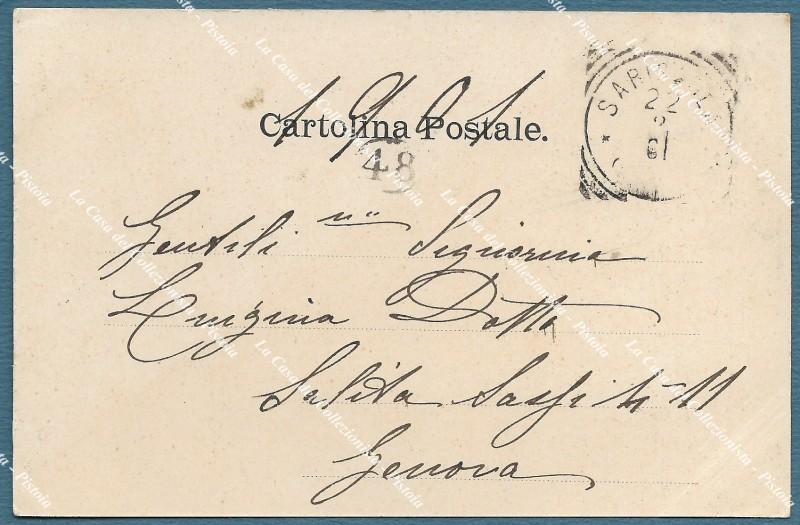 1901
Cartolina Postale.
48
22
Gentili ma Signorina
Luigina Dotta
Salita Sassi N 11
Genova
La Casa del Collezionista - Pistoia